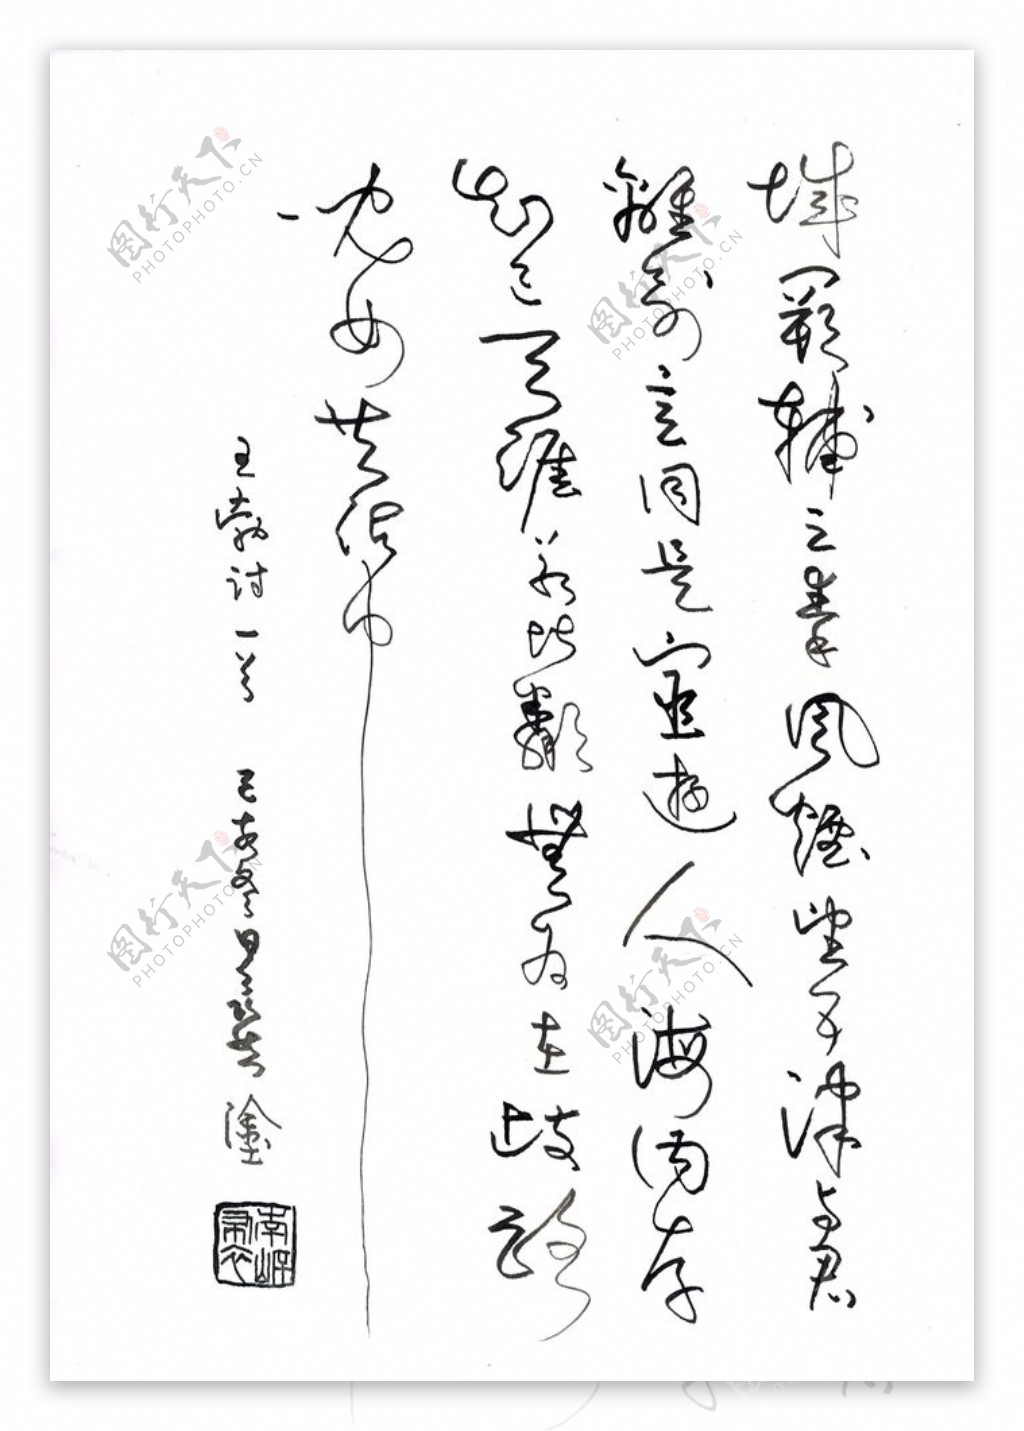 城阙辅三秦风烟望五津与君
離别意同是宦遊人海内存
知己天涯若比鄰無为在歧路
儿女共沾巾
王勃诗一首
塗
图行天下
PHOTOPHOTO.CN
图行天下
PHOTOPHOTO.CN
图行天下
PHOTOPHOTO.CN
图行天下
PHOTOPHOTO.CN